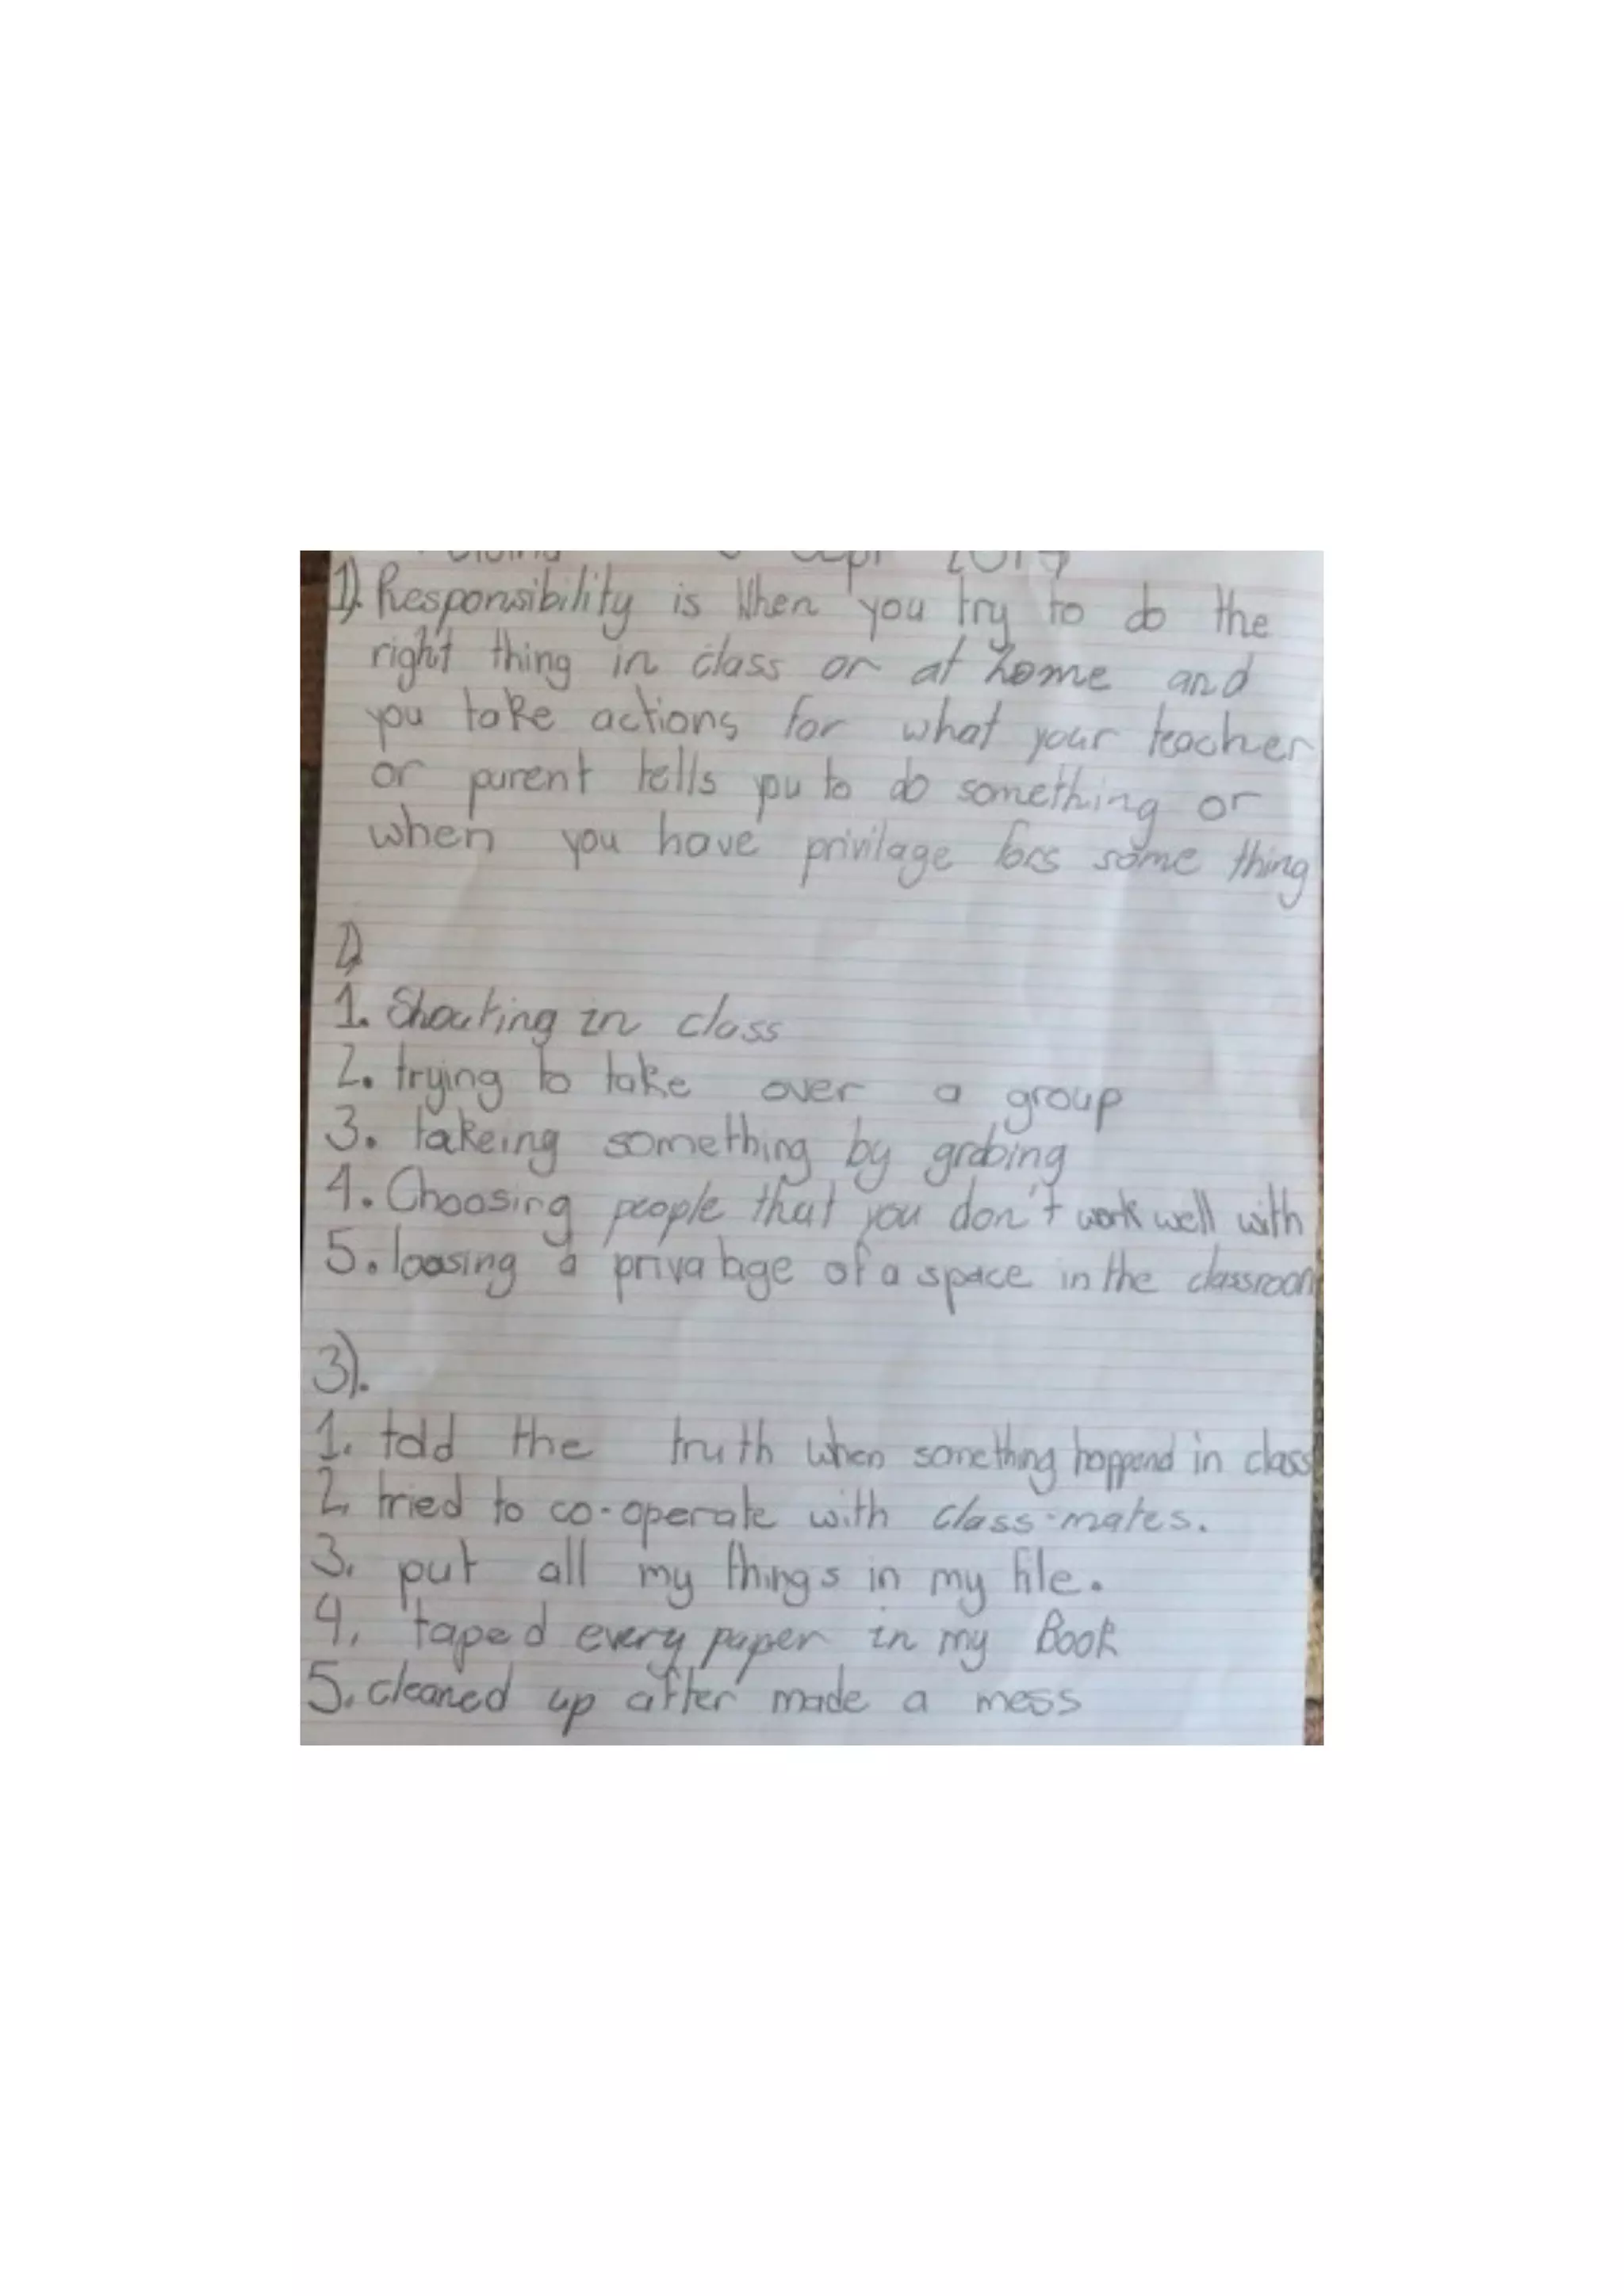 Sept 2017
1). Responsibility is When you try to do the
right thing in class or at home and
you take actions for what your teacher
or purent tells you to do something or
when you have privilage for some thing
2)
1. Shouting in class
2. trying to take over a group
3. takeing something by grabing
4. Choosing people that you don't work well with
5. loosing a privalage of a space in the classroom
3).
1. told the truth when something happend in class
2, tried to co-operate with class-mates.
3. put all my things in my file.
4, taped every paper in my Book
5. cleaned up after made a mess